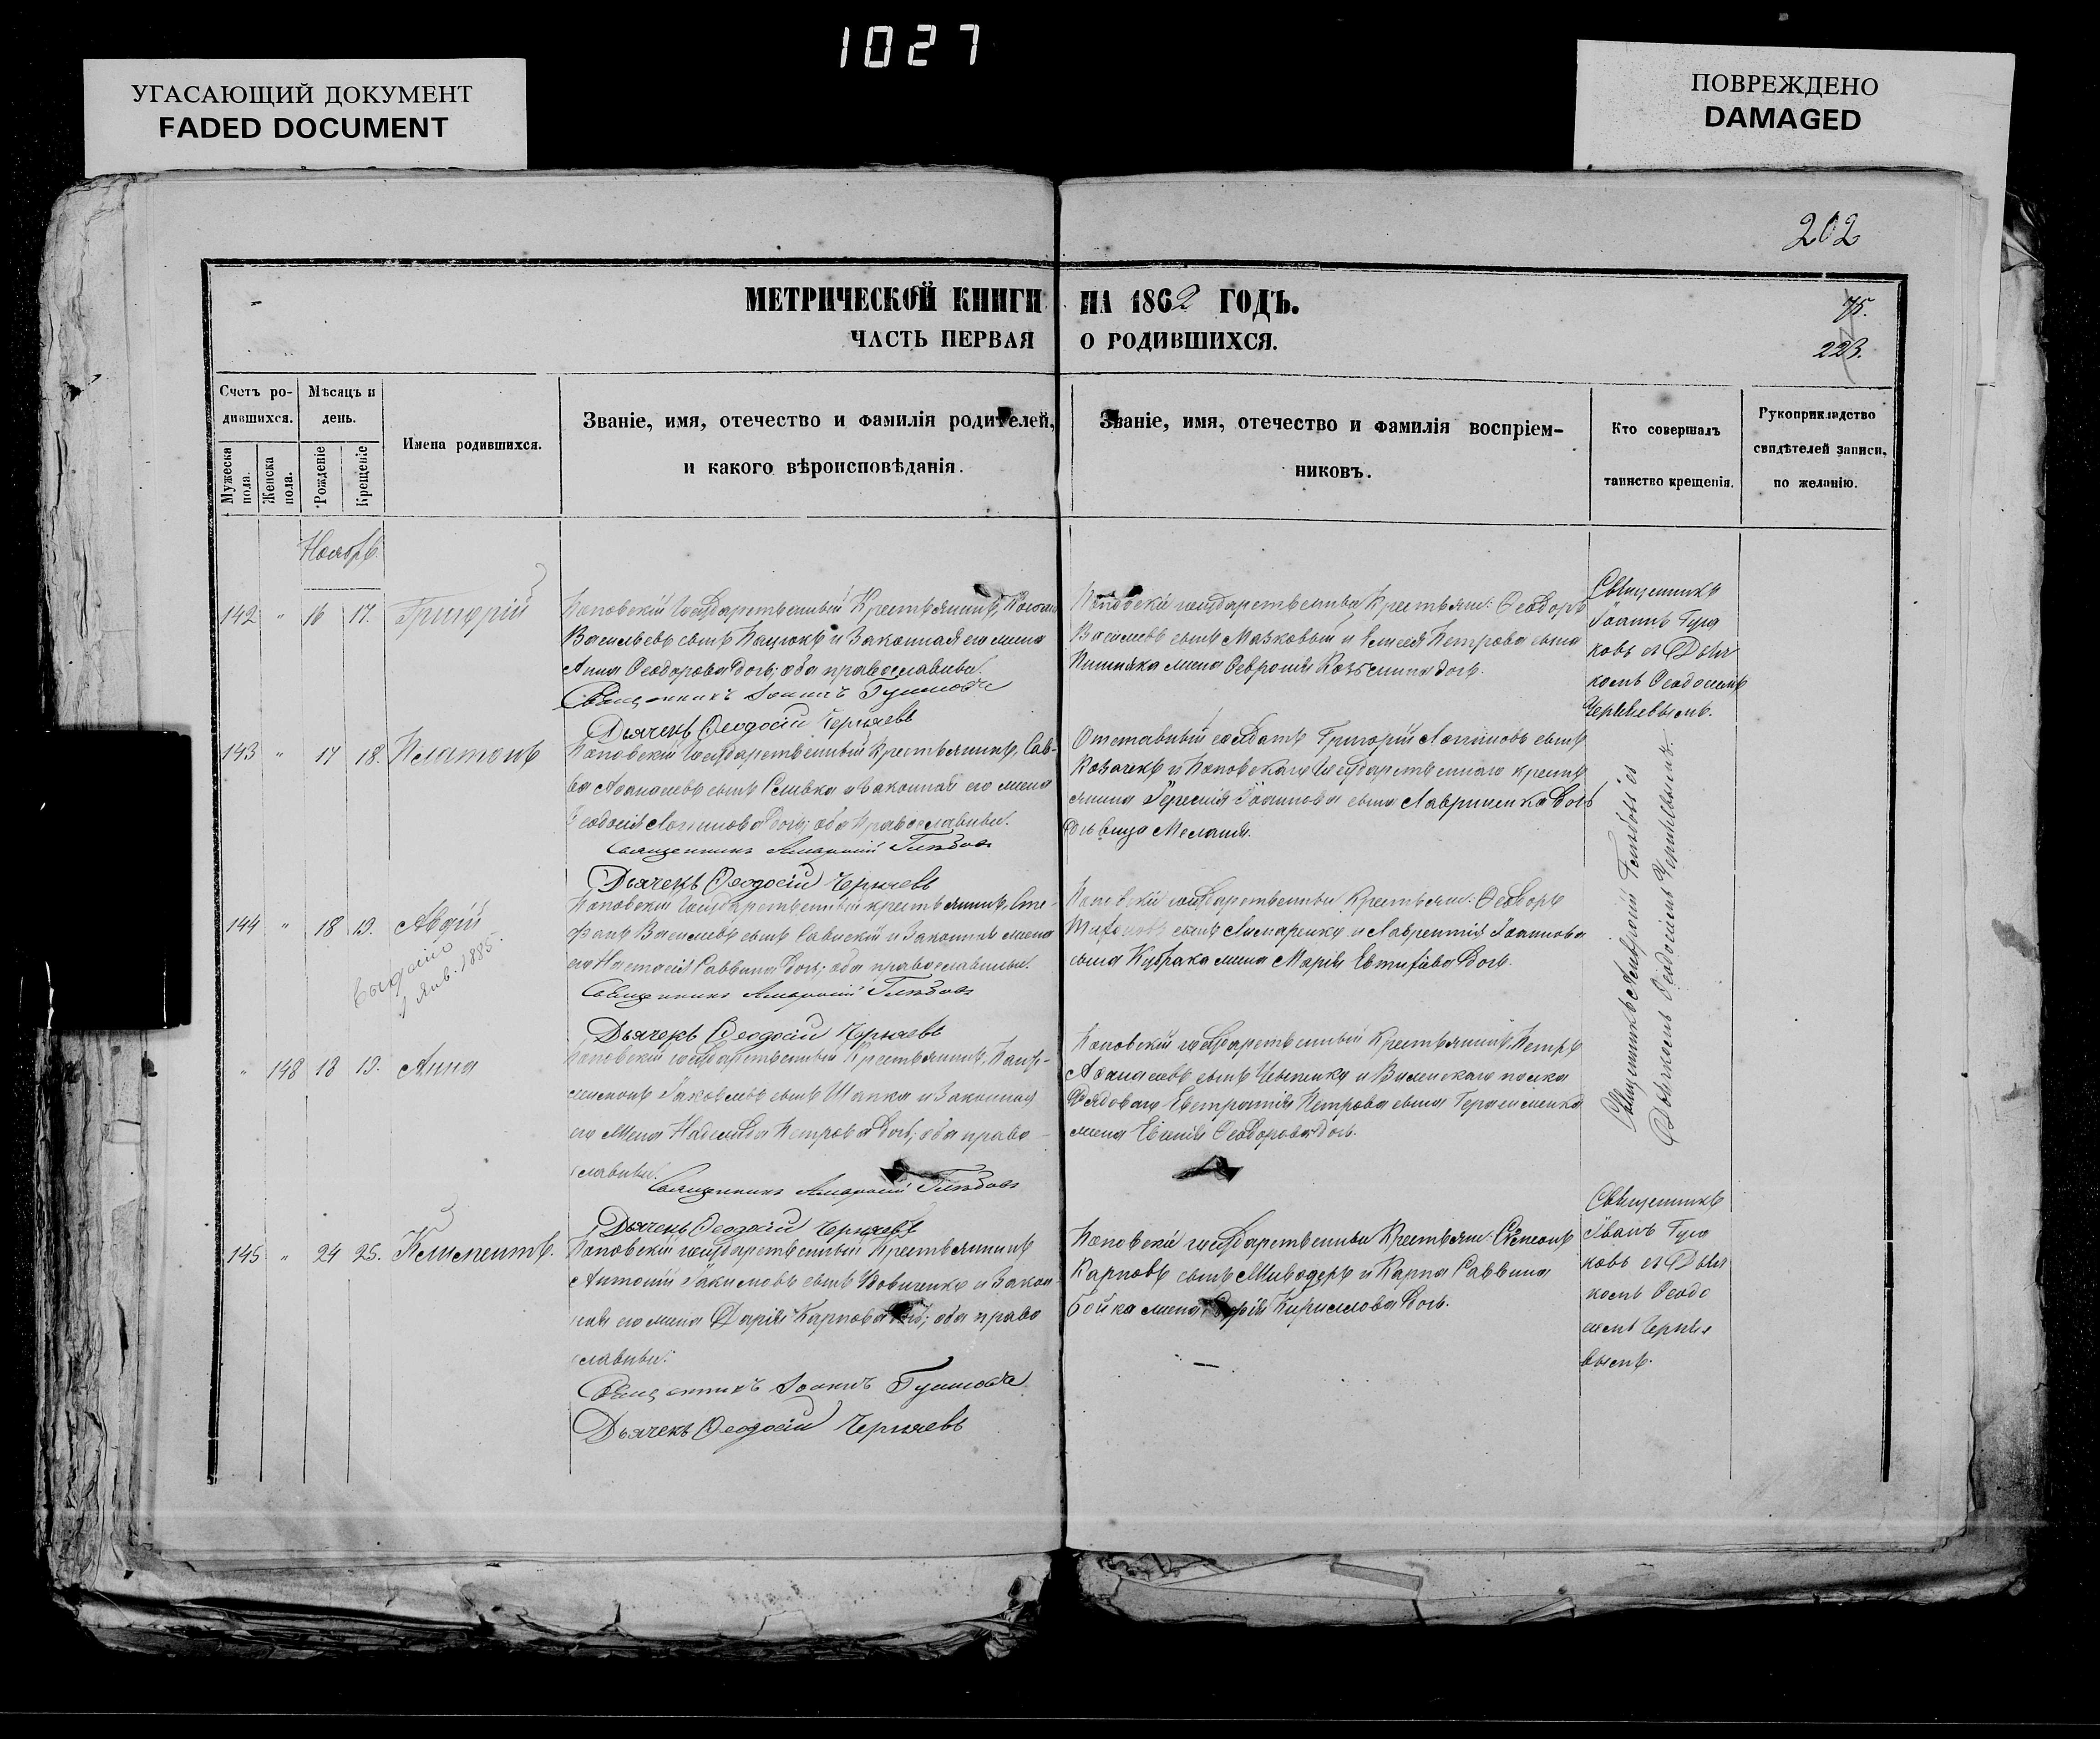 1027
УГАСАЮЩИЙ ДОКУМЕНТ
FADED DOCUMENT
ПОВРЕЖДЕНО
DAMAGED
202
МЕТРИЧЕСКОЙ КНИГИ НА 1862 ГОДЪ.
75.
ЧАСТЬ ПЕРВАЯ О РОДИВШИХСЯ.
223.
Счетъ родившихся.
Мужеска пола.
Женска пола.
Мѣсяцъ и день.
Рожденіе
Крещеніе
Имена родившихся.
Званіе, имя, отечество и фамилія родителей,
и какого вѣроисповѣданія.
Званіе, имя, отечество и фамилія воспріем-
никовъ.
Кто совершалъ
таинство крещенія.
Рукоприкладство
свидѣтелей записи,
по желанію.
Ноябрь
142 " 16 17. Григорій
Поповскій Государственный Крестьянинъ,
Васильевъ сынъ Кацюкъ и Законная его жена
Анна Ѳеодорова дочь; оба православные.
Священникъ Іоаннъ
Дьячекъ Ѳеодосій Черняевъ
Поповскіе государственные Крестьян: Ѳеодоръ
Василіевъ сынъ Мазковый и Елисея Петрова сына
жена Ѳевронія Козьмина дочь.
Священникъ
Іоаннъ
ковъ съ Дьяч
комъ Ѳеодосіемъ
Черняевымъ.
143 " 17 18. Платонъ
Поповскій Государственный Крестьянинъ, Сав-
ва Аѳанасьевъ сынъ Сливка и Законная его жена
Ѳеодосія Логинова дочь; оба Православные.
Священникъ Амвросій
Дьячекъ Ѳеодосій Черняевъ
Отставный солдатъ Григорій Логиновъ сынъ
Козачекъ и Поповскаго Государственнаго кресть
янина Терентія Іоаннова сына Лавриненка дочь
дѣвица Меланія.
144 " 18 19. Авдій
1885.
Поповскій Государственный крестьянинъ, Сте-
фанъ Василіевъ сынъ Савискій и Законная жена
его Настасія Саввина дочь; оба православные.
Священникъ Амвросій
Дьячекъ Ѳеодосій Черняевъ
Поповскіе государственные Крестьян: Ѳеодоръ
сынъ Лимаренко и Лаврентія Іоаннова
сына Кубрака жена Марія Евтифіева дочь.
Священникъ Амвросій съ
Дьячкомъ Ѳеодосіемъ Черняевымъ.
" 148 18 19. Анна
Поповскій государственный Крестьянинъ,
Іаковлевъ сынъ Шапка и Законная
его жена Надежда Петрова дочь; оба право-
славные.
Священникъ Амвросій
Дьячекъ Ѳеодосій Черняевъ
Поповскій государственный Крестьянинъ, Петръ
Аѳанасьевъ сынъ и Виленскаго полка
рядоваго Евстратія Петрова сына Герасименка
жена Евгенія Ѳеодорова дочь.
145 " 24 25. Климентъ.
Поповскій государственный Крестьянинъ
Антоній Іакимовъ сынъ Вовченко и Закон
ная его жена Дарія Карпова дочь; оба право
славные.
Священникъ Іоаннъ
Дьячекъ Ѳеодосій Черняевъ
Поповскіе государственные Крестьян: Симеонъ
Карповъ сынъ Живодеръ и Карпа Саввина
Бойка жена Кириллова дочь.
Священникъ
Іванъ
ковъ съ Дьяч
комъ Ѳеодо
сіемъ Черняе
вымъ.